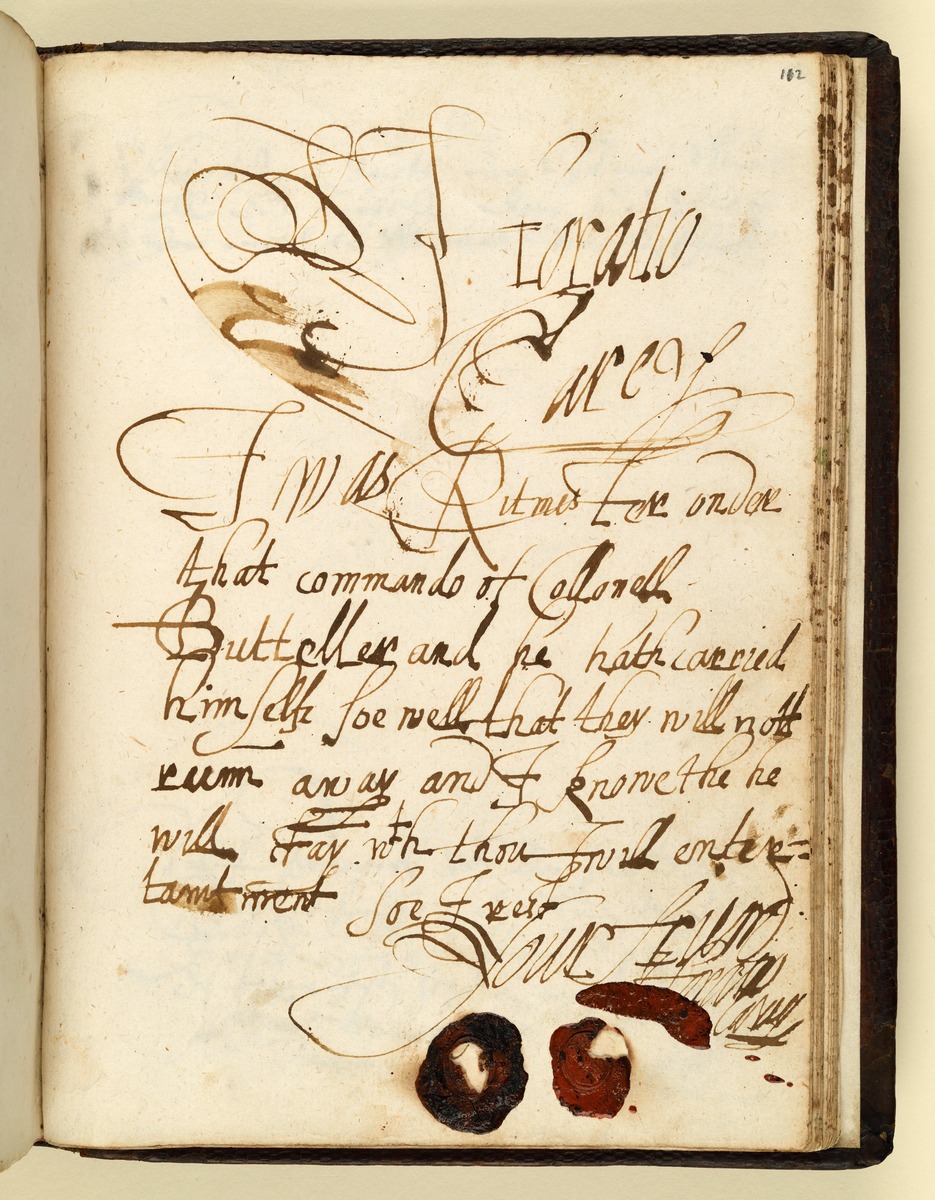 112
Horatio
Carey
I was Ritmester onder
that commando of Collonell
Butteller and he hath carried
himselfe soe well that they will nott
runn away and I knowe the he
will stay wth thou I will enter=
tamt ment soe I rest
Your
Horatio
Carey